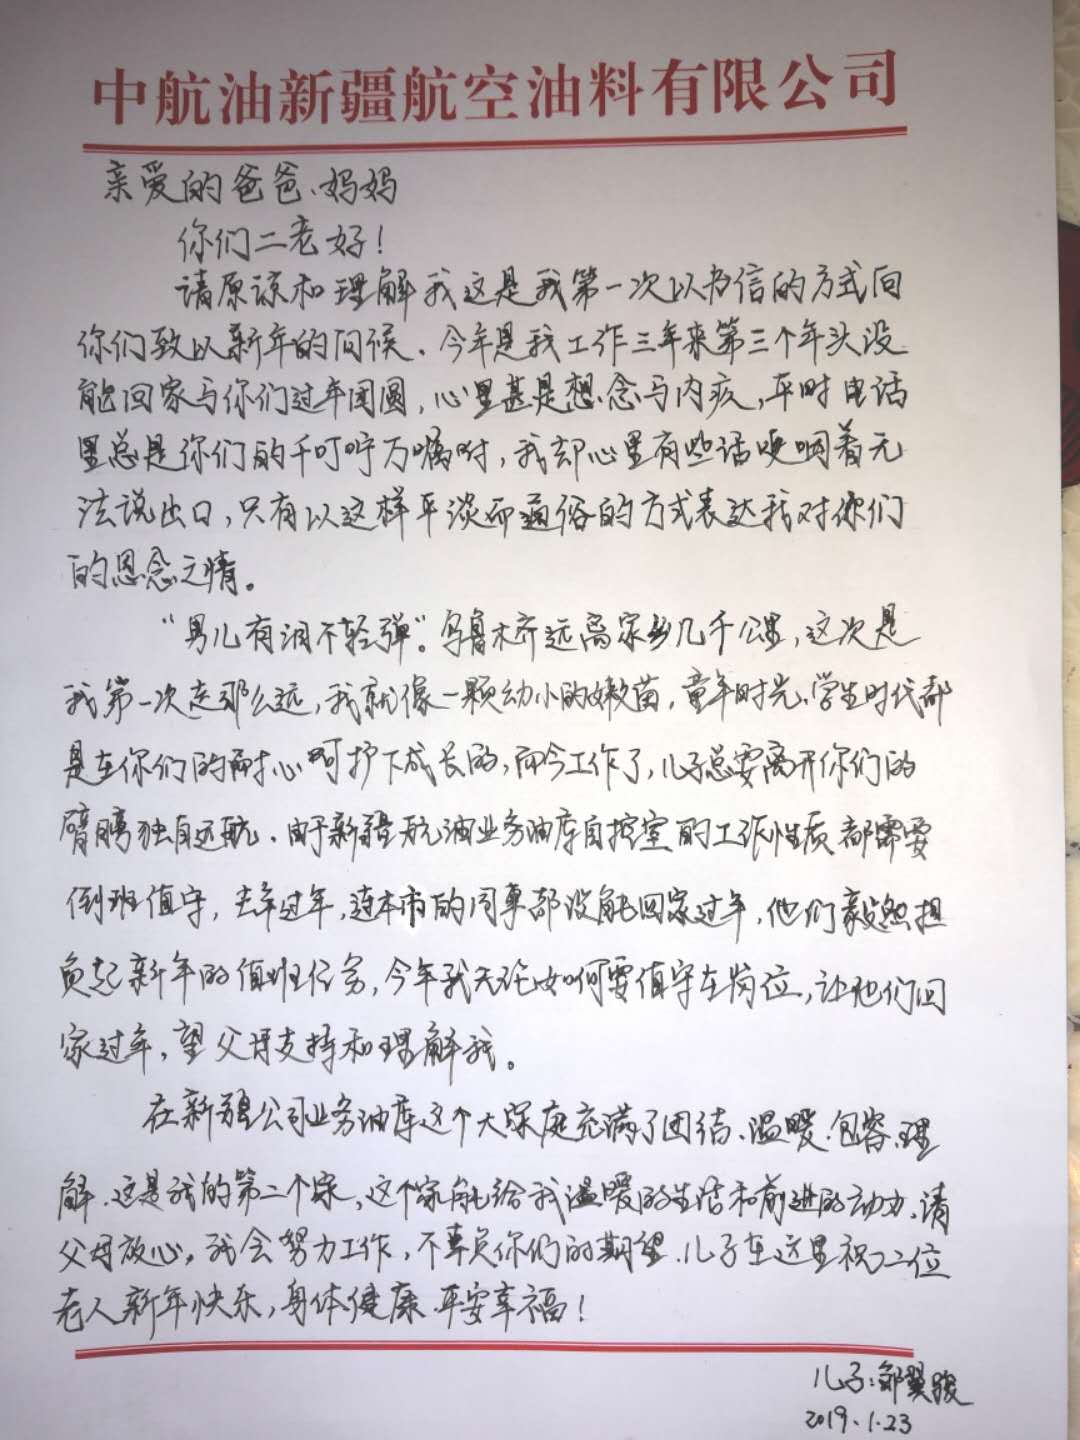 中航油新疆航空油料有限公司
亲爱的爸爸、妈妈
你们二老好！
请原谅和理解我这是我第一次以书信的方式向
你们致以新年的问候．今年是我工作三年来第三个年头没
能回家与你们过年团圆，心里甚是想念与内疚，平时电话
里总是你们的千叮咛万嘱咐，我却心里有些话哽咽着无
法说出口，只有以这样平淡而通俗的方式表达我对你们
的恩念之情。
“男儿有泪不轻弹”。乌鲁木齐远离家乡几千公里，这次是
我第一次走那么远，我就像一颗幼小的嫩苗，童年时光、学生时代都
是在你们的耐心呵护下成长的，而今工作了，儿子总要离开你们的
臂膀独自远航．由于新疆航油业务油库自控室的工作性质都需要
倒班值守，去年过年，连本市的同事都没能回家过年，他们毅然担
负起新年的值班任务，今年我无论如何要值守在岗位，让他们回
家过年，望父母支持和理解我。
在新疆公司业务油库这个大家庭充满了团结、温暖、包容、理
解．这是我的第二个家，这个家能给我温暖的生活和前进的动力．请
父母放心，我会努力工作，不辜负你们的期望．儿子在这里祝二位
老人新年快乐，身体健康．平安幸福！
儿子：邹翼骏
2019.1.23